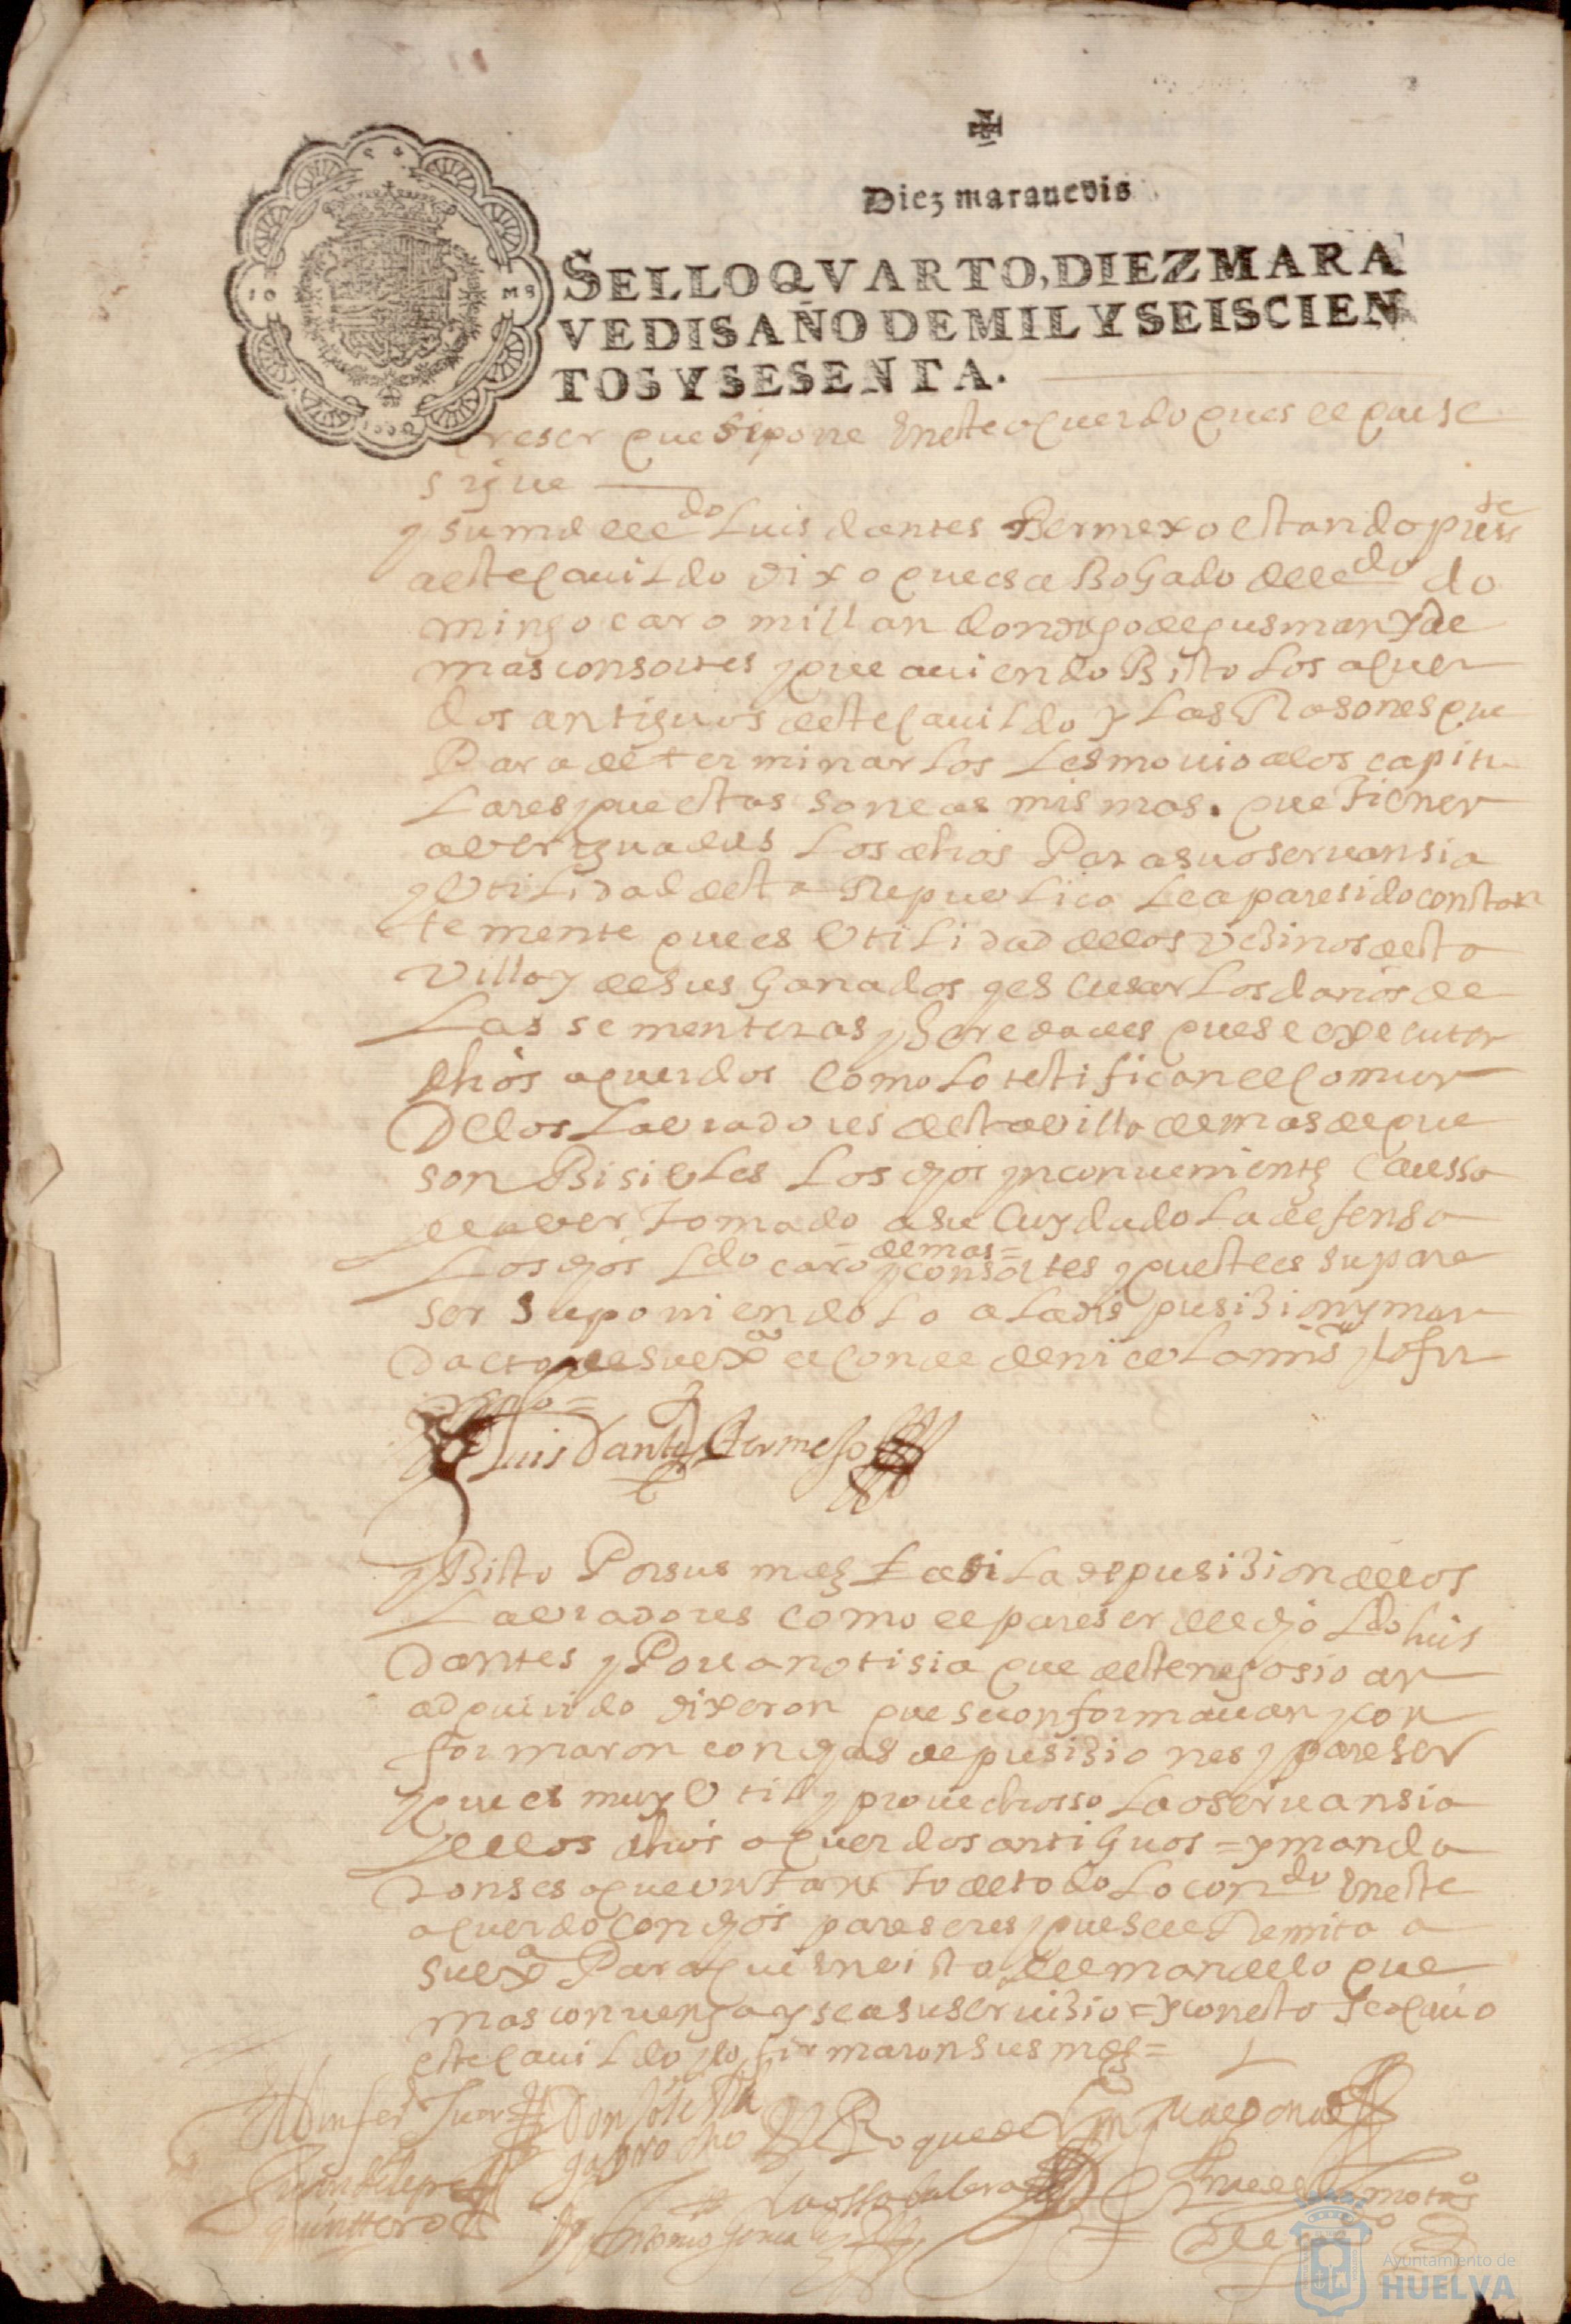 Diez marauedis
SELLO QVARTO, DIEZ MARA
VEDIS AÑO DE MIL Y SEISCIEN
TOS Y SESENTA.
reser que se pone en este aquerdo ques el que se
sigue
y su md el ldo Luis dantes Bermexo estando press te
a este cauildo dixo que es aBoGado del ldo do
mingo caro millan don diego de gusman y de
mas consortes y que auiendo Bisto los aquer
dos antiguos deste cauildo y las Rasones que
Para determinarlos les mouio a los capitu
lares que estas son las mismas. que tienen
averiguadas los dhos Para su oseruansia
y Utilidad desta Republica le a paresido constan
temente que es Utilidad de los vesinos desta
Villa y de sus Ganados y escusar los daños de
las sementeras y heredades que se executen
dhos aquerdos como lo testifican el comun
De los Labradores desta villa demas de que
son Bisibles los dhos ynconuenientes Causa
de aver tomado a su Cuydado la defensa
demas=
Los dhos Ldo caro y consortes y que este es su pare
ser suponiendolo a la dispusision y man
dacto de su exa el conde de niebla mi sr y lo fir
mo=
Luis Dantes Bermejo
y Bisto Por sus mds asi la depusision de los
Labradores como el pareser del dho Ldo luis
Dantes y Por la notisia que deste negosio an
adquirido dixeron que se conformauan y con
formaron con dhas depusisiones y pareser
y que es muy Util y prouechosso la oseruansia
de los dhos aquerdos antiguos = y manda
ron se saque un tanto de todo lo contdo en este
aquerdo con dhos pareseres y que se le Remita a
su exa Para que en vista del mande lo que
mas conuenga y sea su seruisio = y con esto se acauo
este cauildo y lo firmaron sus mds=
Juan
Don
Roque de
quinttero
Antonio
Ayuntamiento de
HUELVA